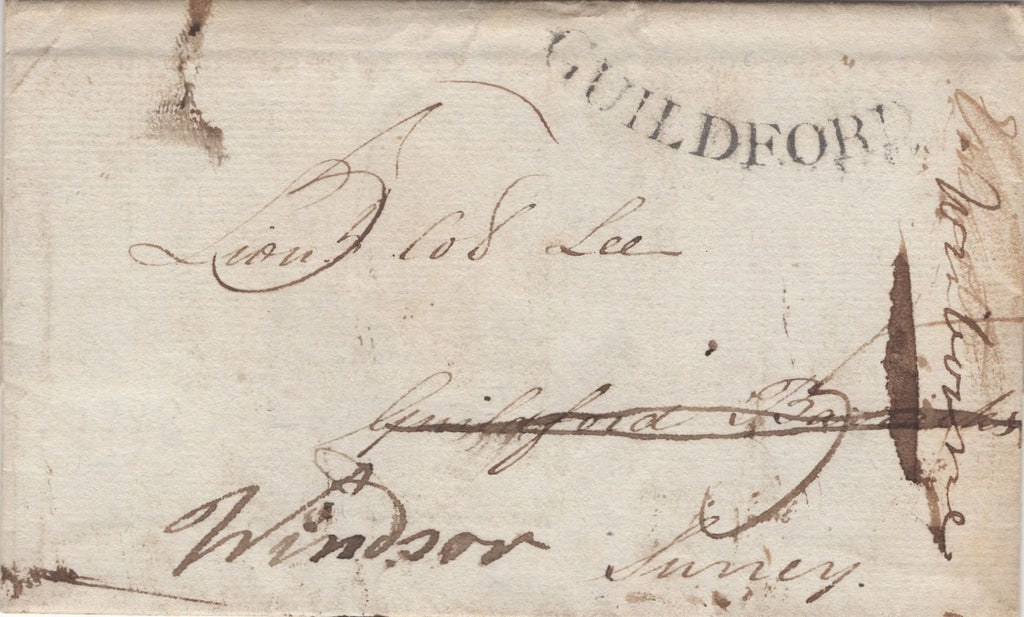 GUILDFORD
Lieut Col Lee
Guildford Barracks
Windsor
Surrey.